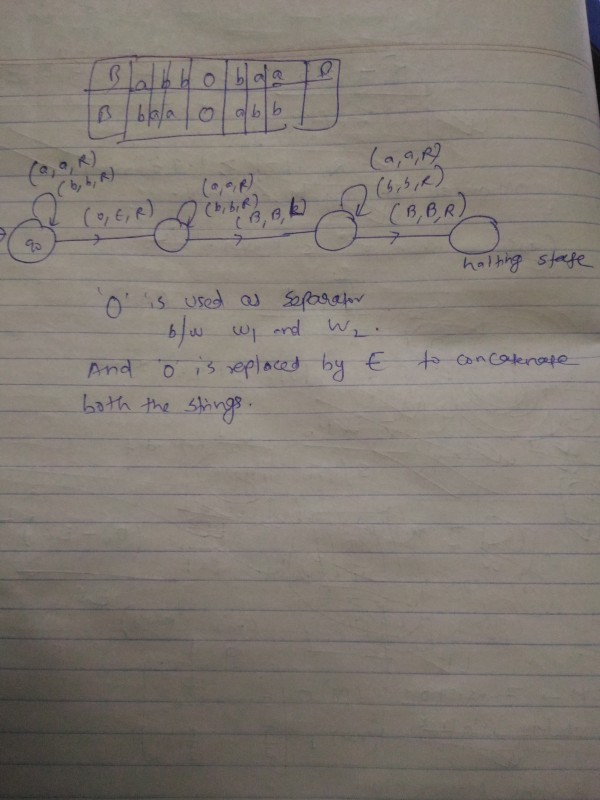 B a b b 0 b a a B
B b a a 0 a b b
(a, a, R)
(b, b, R)
(a, a, R)
(b, b, R)
(a, a, R)
(b, b, R)
(0, ε, R)
(B, B,
(B, B, R)
q0
halting stage
'0' is used as separator
b/w w1 and W2.
And '0' is replaced by ε to concatenate
both the strings.